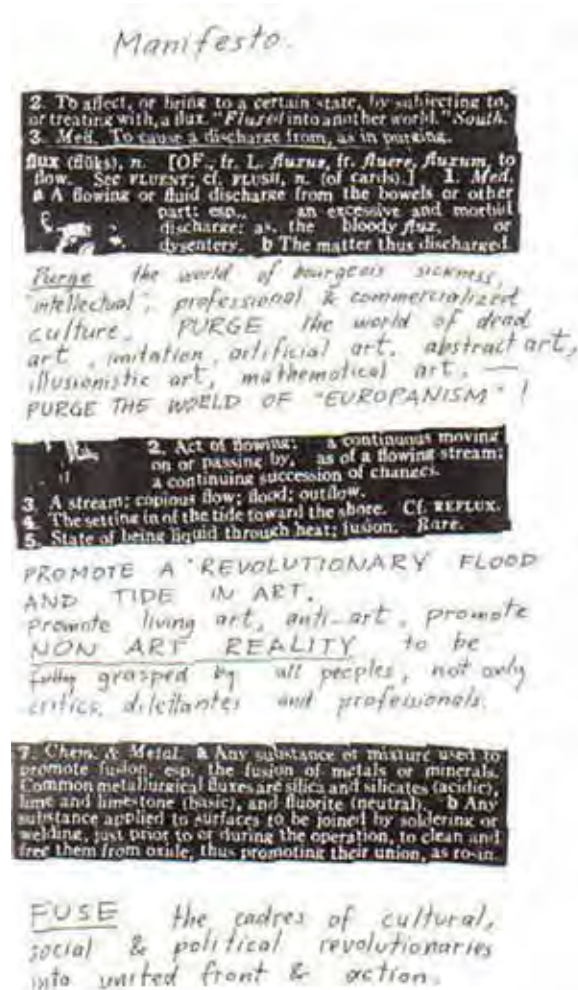 Manifesto.
2. To affect, or bring to a certain state, by subjecting to,
or treating with, a flux. "Fluxed into another world." South.
3. Med. To cause a discharge from, as in purging.
flux (flŭks), n. [OF., fr. L. fluxus, fr. fluere, fluxum, to
flow. See FLUENT; cf. FLUSH, n. (of cards).] 1. Med.
a A flowing or fluid discharge from the bowels or other
part; esp., an excessive and morbid
discharge; as, the bloody flux, or
dysentery. b The matter thus discharged.
Purge the world of bourgeois sickness,
"intellectual", professional & commercialized
culture. PURGE the world of dead
art, imitation, artificial art, abstract art,
illusionistic art, mathematical art, —
PURGE THE WORLD OF "EUROPANISM"!
2. Act of flowing: a continuous moving
on or passing by, as of a flowing stream;
a continuing succession of changes.
3. A stream; copious flow; flood; outflow.
4. The setting in of the tide toward the shore. Cf. REFLUX.
5. State of being liquid through heat; fusion. Rare.
PROMOTE A REVOLUTIONARY FLOOD
AND TIDE IN ART.
Promote living art, anti-art, promote
NON ART REALITY to be
fully grasped by all peoples, not only
critics, dilettantes and professionals.
7. Chem. & Metal. a Any substance or mixture used to
promote fusion, esp. the fusion of metals or minerals.
Common metallurgical fluxes are silica and silicates (acidic),
lime and limestone (basic), and fluorite (neutral). b Any
substance applied to surfaces to be joined by soldering or
welding, just prior to or during the operation, to clean and
free them from oxide, thus promoting their union, as rosin.
FUSE the cadres of cultural,
social & political revolutionaries
into united front & action.